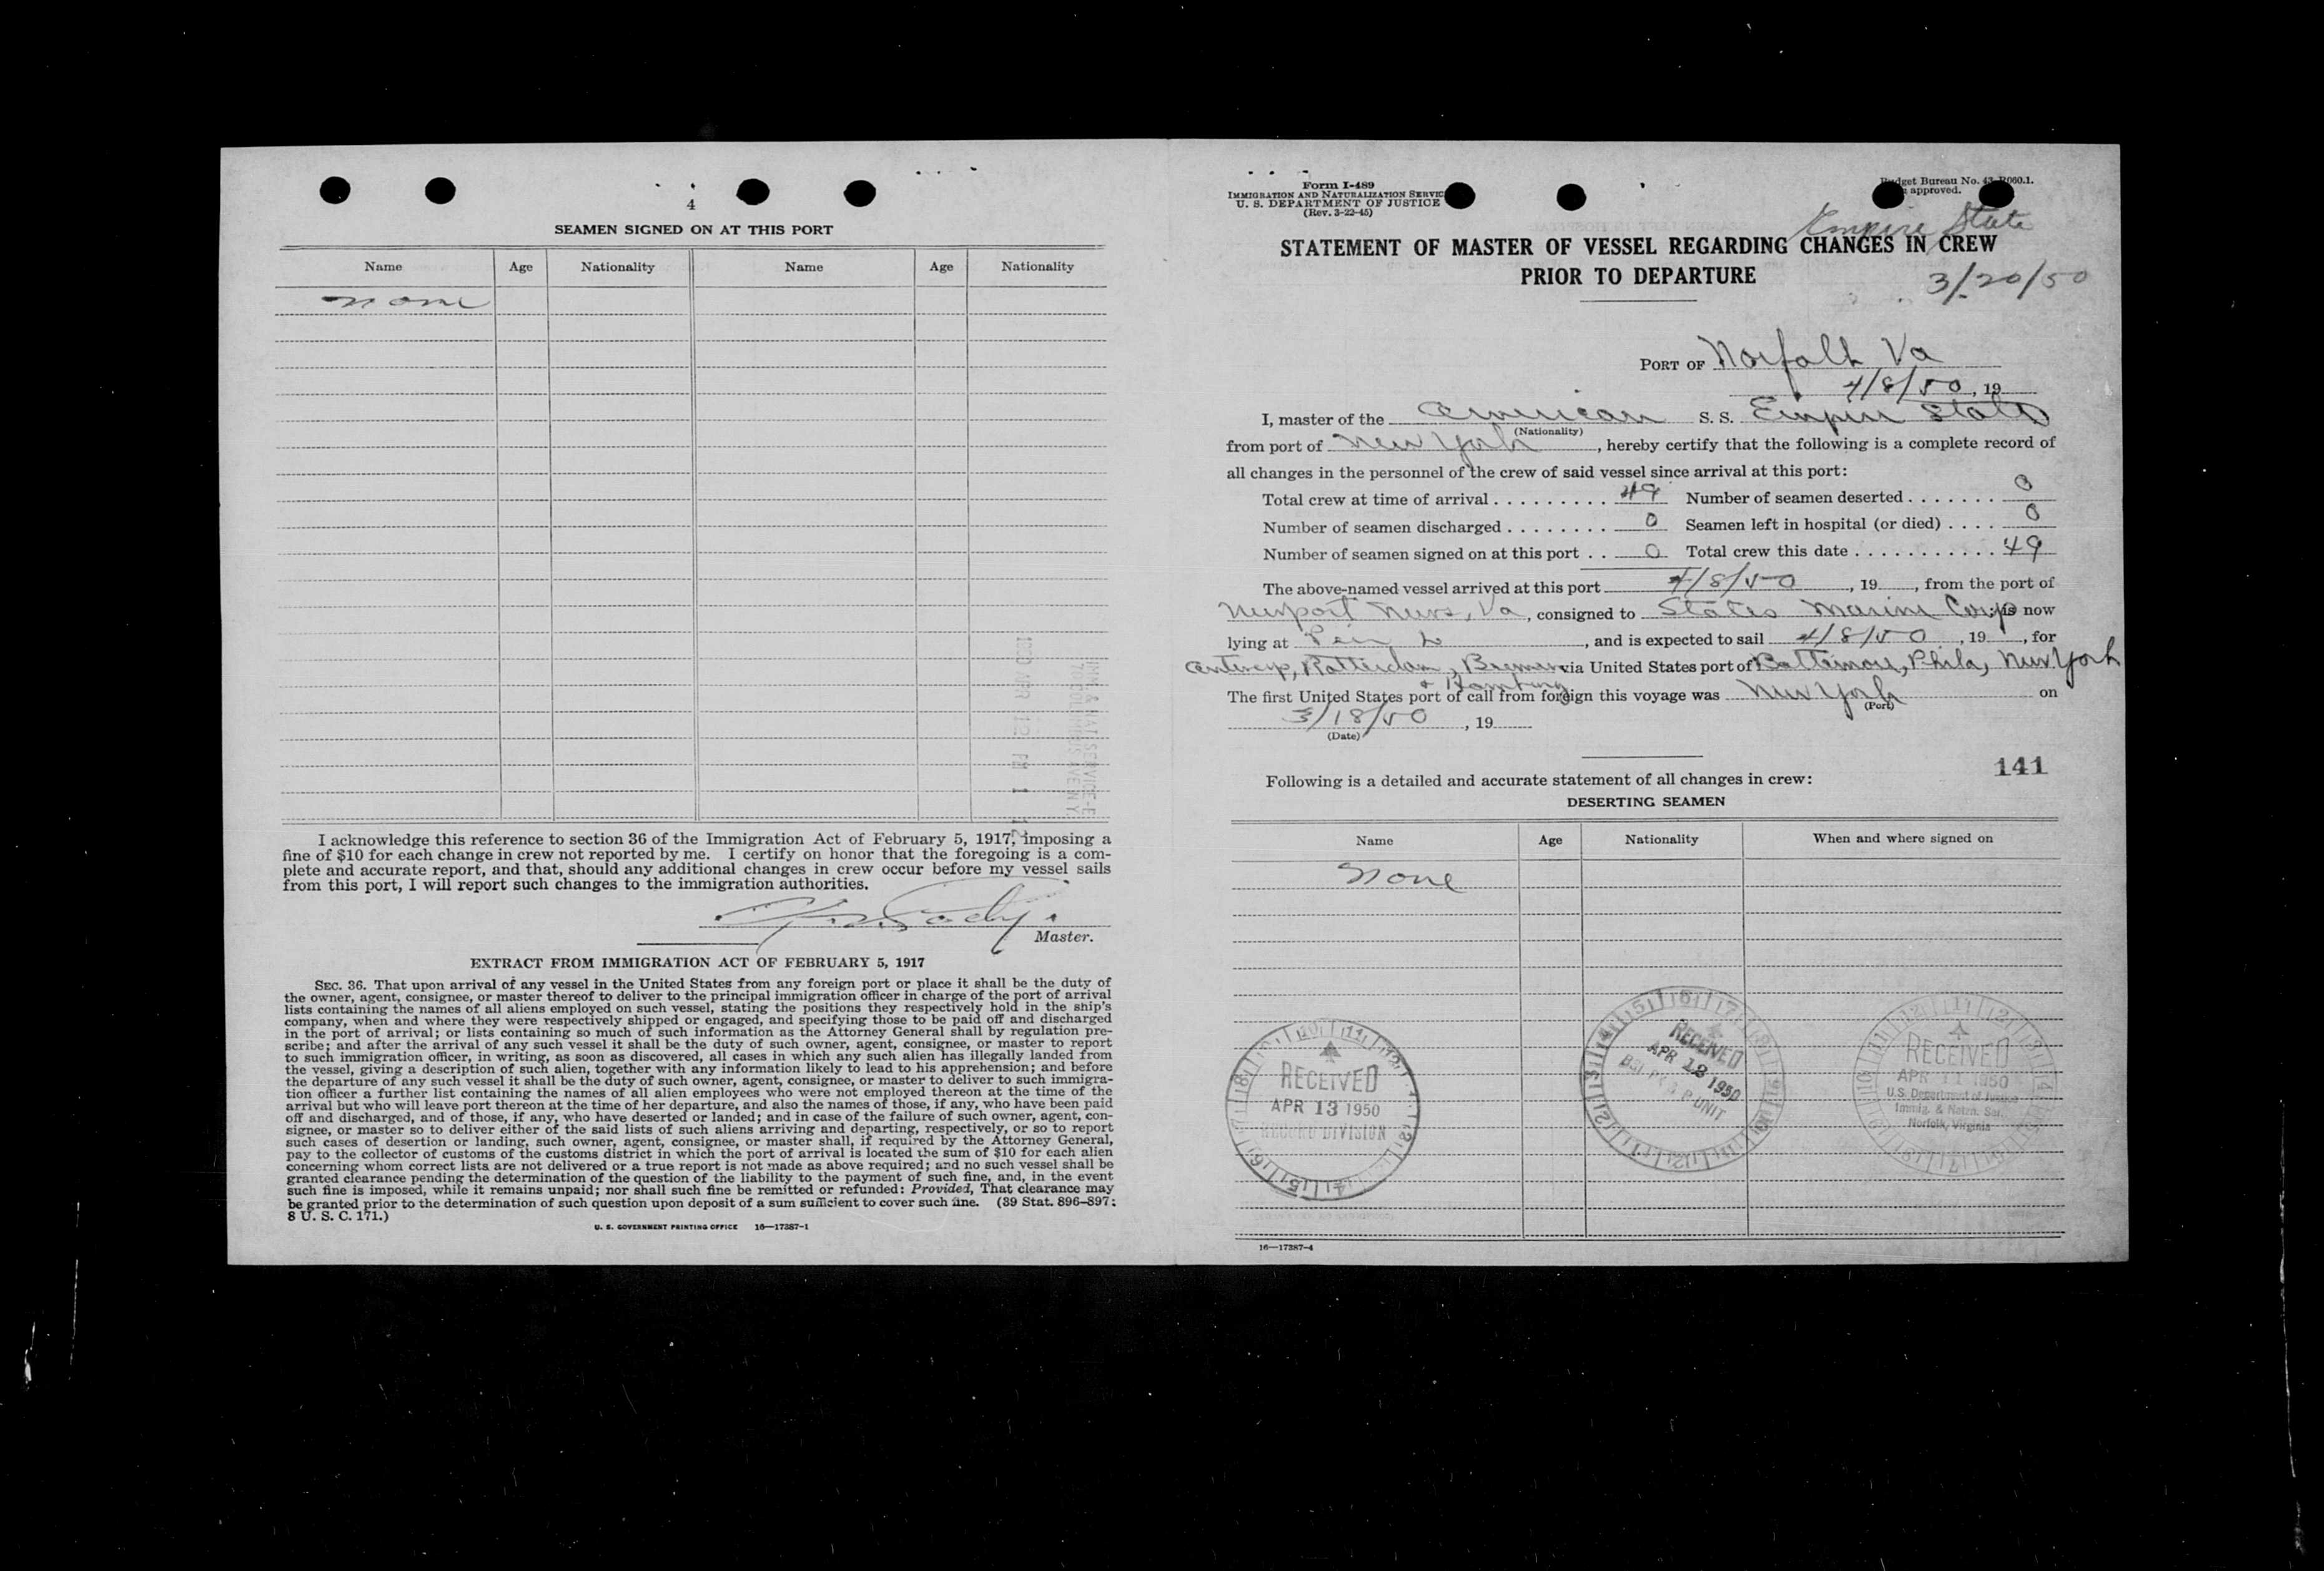 4
SEAMEN SIGNED ON AT THIS PORT
Name Age Nationality Name Age Nationality
None
I acknowledge this reference to section 36 of the Immigration Act of February 5, 1917, imposing a
fine of $10 for each change in crew not reported by me. I certify on honor that the foregoing is a com-
plete and accurate report, and that, should any additional changes in crew occur before my vessel sails
from this port, I will report such changes to the immigration authorities.
Master.
EXTRACT FROM IMMIGRATION ACT OF FEBRUARY 5, 1917
SEC. 36. That upon arrival of any vessel in the United States from any foreign port or place it shall be the duty of
the owner, agent, consignee, or master thereof to deliver to the principal immigration officer in charge of the port of arrival
lists containing the names of all aliens employed on such vessel, stating the positions they respectively hold in the ship's
company, when and where they were respectively shipped or engaged, and specifying those to be paid off and discharged
in the port of arrival; or lists containing so much of such information as the Attorney General shall by regulation pre-
scribe; and after the arrival of any such vessel it shall be the duty of such owner, agent, consignee, or master to report
to such immigration officer, in writing, as soon as discovered, all cases in which any such alien has illegally landed from
the vessel, giving a description of such alien, together with any information likely to lead to his apprehension; and before
the departure of any such vessel it shall be the duty of such owner, agent, consignee, or master to deliver to such immigra-
tion officer a further list containing the names of all alien employees who were not employed thereon at the time of the
arrival but who will leave port thereon at the time of her departure, and also the names of those, if any, who have been paid
off and discharged, and of those, if any, who have deserted or landed; and in case of the failure of such owner, agent, con-
signee, or master so to deliver either of the said lists of such aliens arriving and departing, respectively, or so to report
such cases of desertion or landing, such owner, agent, consignee, or master shall, if required by the Attorney General,
pay to the collector of customs of the customs district in which the port of arrival is located the sum of $10 for each alien
concerning whom correct lists are not delivered or a true report is not made as above required; and no such vessel shall be
granted clearance pending the determination of the question of the liability to the payment of such fine, and, in the event
such fine is imposed, while it remains unpaid; nor shall such fine be remitted or refunded: Provided, That clearance may
be granted prior to the determination of such question upon deposit of a sum sufficient to cover such fine. (39 Stat. 896-897;
8 U. S. C. 171.)
U. S. GOVERNMENT PRINTING OFFICE 16—17387-1
Form I-489
IMMIGRATION AND NATURALIZATION SERVIC
U. S. DEPARTMENT OF JUSTICE
(Rev. 3-22-45)
dget Bureau No. 43-R060.1.
approved.
Empire State
STATEMENT OF MASTER OF VESSEL REGARDING CHANGES IN CREW
PRIOR TO DEPARTURE
3/20/50
PORT OF Norfolk Va
4/8/50, 19
I, master of the American S. S. Empire State
(Nationality)
from port of New York, hereby certify that the following is a complete record of
all changes in the personnel of the crew of said vessel since arrival at this port:
Total crew at time of arrival 49 Number of seamen deserted 0
Number of seamen discharged 0 Seamen left in hospital (or died) 0
Number of seamen signed on at this port 0 Total crew this date 49
The above-named vessel arrived at this port 4/8/50, 19, from the port of
Newport News, Va, consigned to States Marine Corp; is now
lying at Pier L, and is expected to sail 4/8/50, 19, for
Antwerp, Rotterdam, Bremen via United States port of Baltimore, Phila, New York
& Hamburg
The first United States port of call from foreign this voyage was New York on
(Port)
3/18/50, 19
(Date)
141
Following is a detailed and accurate statement of all changes in crew:
DESERTING SEAMEN
Name Age Nationality When and where signed on
None
RECEIVED
APR 13 1950
RECORD DIVISION
RECEIVED
APR 18 1950
UNIT
RECEIVED
APR 11 1950
U.S. Department of Justice
Immig. & Natzn. Ser.
Norfolk, Virginia
16—17387-4